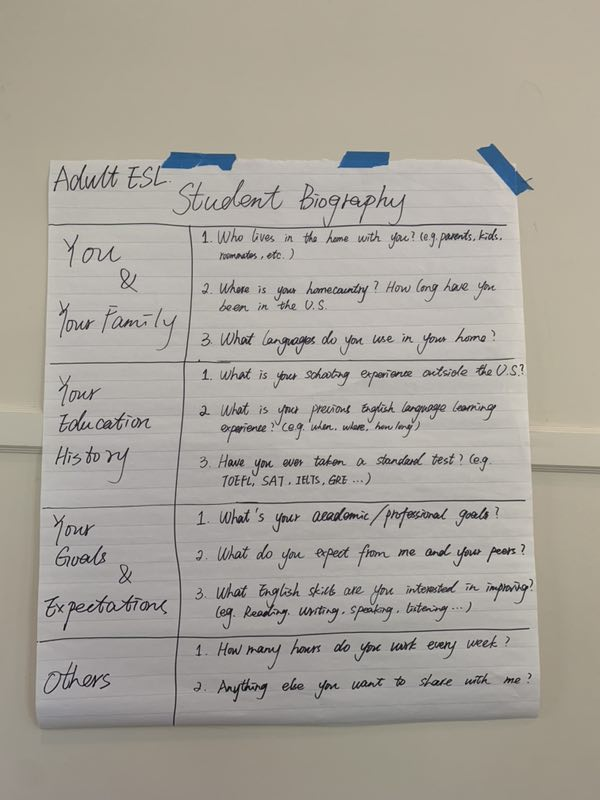 Adult ESL.
Student Biography
You
&
Your Family
1. Who lives in the home with you? (e.g. parents, kids,
roommates, etc.)
2. Where is your homecountry? How long have you
been in the U.S.
3. What languages do you use in your home?
Your
Education
History
1. What is your schooling experience outside the U.S.?
2. What is your previous English language learning
experience? (e.g. when, where, how long)
3. Have you ever taken a standard test? (e.g.
TOEFL, SAT, IELTS, GRE ...)
Your
Goals
&
Expectations
1. What's your academic/professional goals?
2. What do you expect from me and your peers?
3. What English skills are you interested in improving?
(eg. Reading, writing, speaking, listening ...)
Others
1. How many hours do you work every week?
2. Anything else you want to share with me?